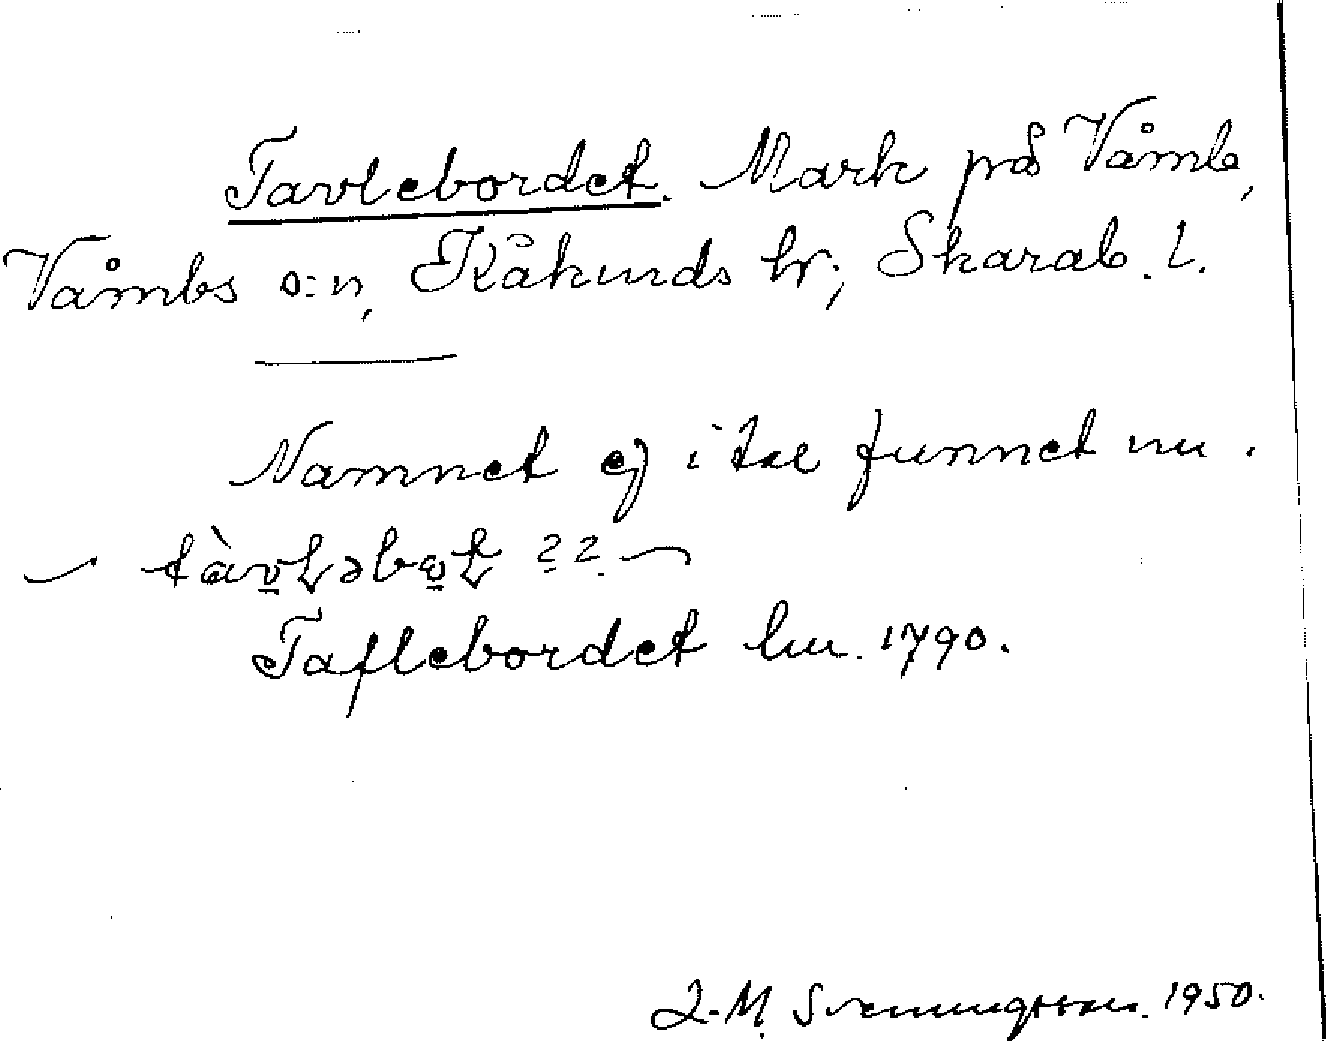 Tavlebordet. Mark på Våmb,
Våmbs s:n, Kåkinds hr; Skarab. l.
Namnet ej i tal funnet nu.
Taflebordet lm. 1790.
L-M. Svenungsson. 1950.